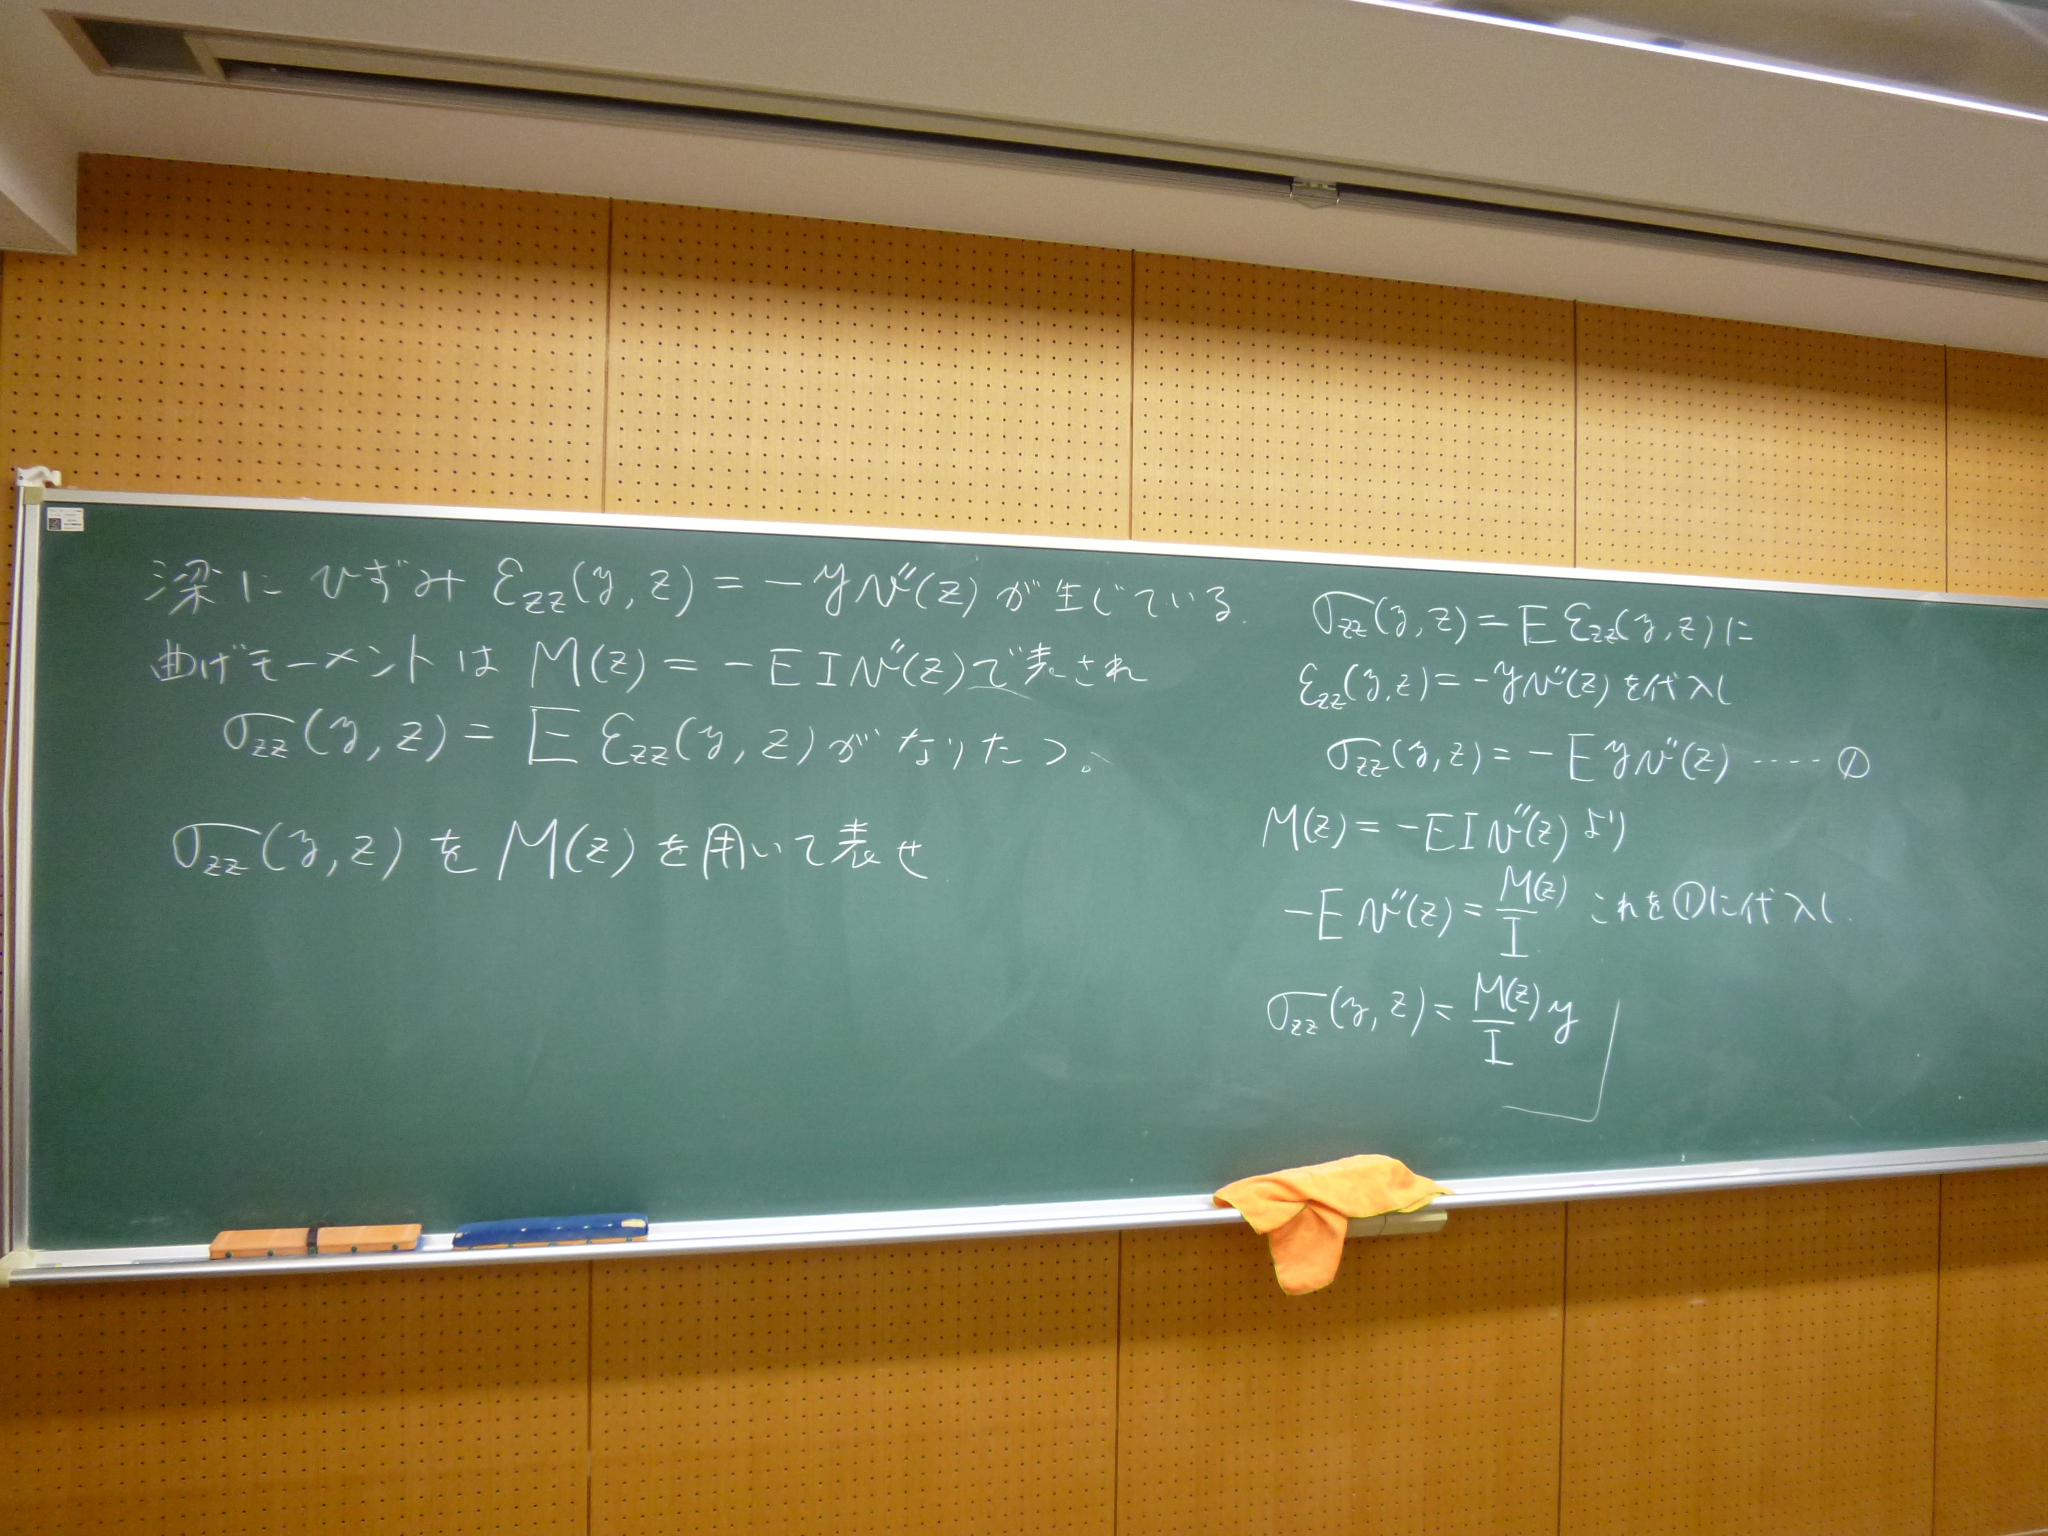 梁にひずみ εzz(y, z) = -yv''(z) が生じている.
曲げモーメントは M(z) = -EIv''(z) で表され
σzz(y, z) = E εzz(y, z) がなりたつ。
σzz(y, z) を M(z) を用いて表せ
σzz(y, z) = E εzz(y, z) に
εzz(y, z) = -yv''(z) を代入し
σzz(y, z) = -E y v''(z) ···· ①
M(z) = -EIv''(z) より
-E v''(z) = M(z)/I これを①に代入し
σzz(y, z) = M(z)/I y